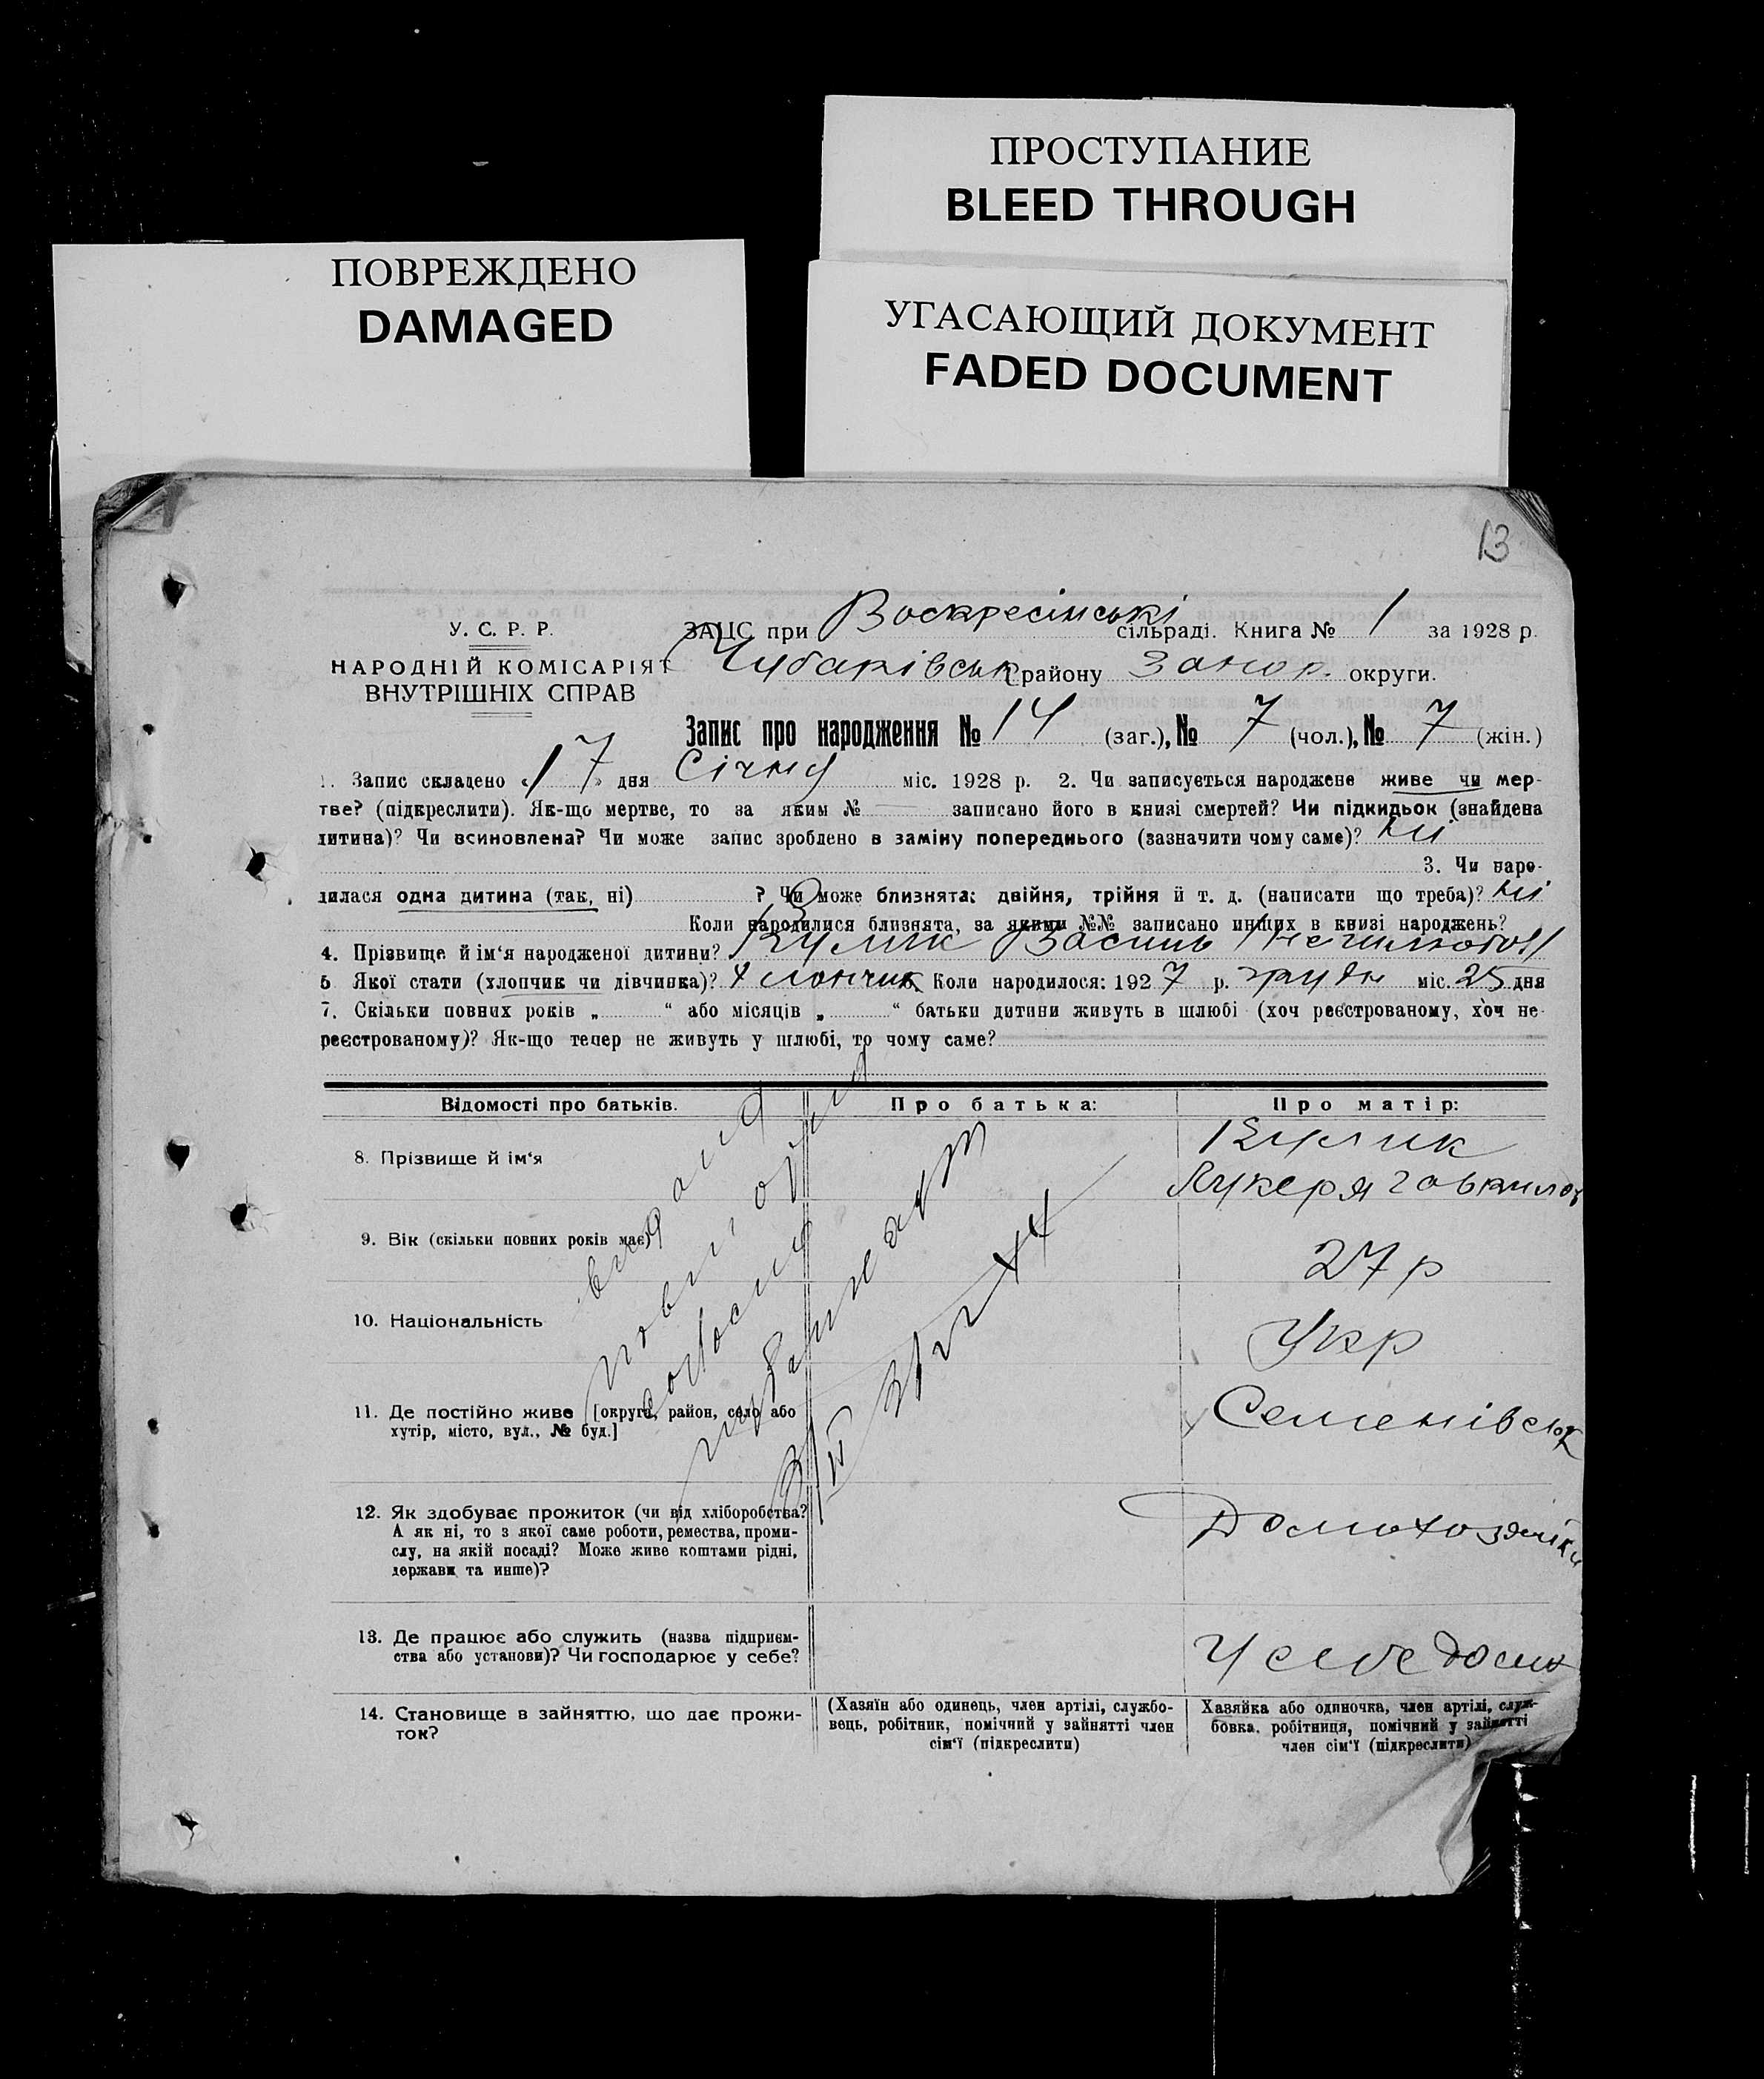 ПРОСТУПАНИЕ
BLEED THROUGH
ПОВРЕЖДЕНО
DAMAGED
УГАСАЮЩИЙ ДОКУМЕНТ
FADED DOCUMENT
13
У. С. Р. Р.
НАРОДНІЙ КОМІСАРІЯТ
ВНУТРІШНІХ СПРАВ
ЗАЦС при Воскресінські сільраді. Книга № 1 за 1928 р.
Чубарівськ району Запор. округи.
Запис про народження № 14 (заг.), № 7 (чол.), № 7 (жін.)
1. Запис складено «17» дня Січня міс. 1928 р. 2. Чи записується народжене живе чи мер-
тве? (підкреслити). Як-що мертве, то за яким № записано його в книзі смертей? Чи підкидьок (знайдена
дитина)? Чи всиновлена? Чи може запис зроблено в заміну попереднього (зазначити чому саме)? ні
3. Чи наро-
дилася одна дитина (так, ні) ? Чи може близнята: двійня, трійня й т. д. (написати що треба)? ні
Коли народилися близнята, за якими №№ записано инших в книзі народжень?
4. Прізвище й ім'я народженої дитини? Кулик Василь
5 Якої стати (хлопчик чи дівчинка)? Хлопчик Коли народилося: 1927 р. грудн міс. 25 дня
7. Скільки повних років „ “ або місяців „ “ батьки дитини живуть в шлюбі (хоч реєстрованому, хоч не-
реєстрованому)? Як-що тепер не живуть у шлюбі, то чому саме?
Відомості про батьків. Про батька: Про матір:
8. Прізвище й ім'я Кулик
Лукеря
9. Вік (скільки повних років має) 27 р
10. Національність Укр
11. Де постійно живе [округа, район, село або
хутір, місто, вул., № буд.]
Семенівськ
12. Як здобуває прожиток (чи від хліборобства?
А як ні, то з якої саме роботи, ремества, проми-
слу, на якій посаді? Може живе коштами рідні,
держави та инше)?
13. Де працює або служить (назва підприєм-
ства або установи)? Чи господарює у себе?
14. Становище в зайняттю, що дає прожи-
ток?
(Хазяїн або одинець, член артілі, службо-
вець, робітник, помічний у зайнятті член
сім'ї (підкреслити)
Хазяйка або одиночка, член артілі, служ-
бовка, робітниця, помічний у зайнятті
член сім'ї (підкреслити)